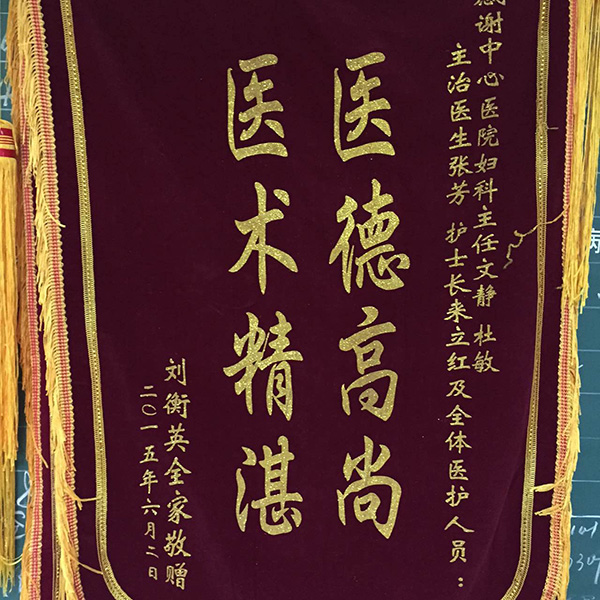 感谢中心医院妇科主任文静 杜敏
主治医生张芳 护士长来立红及全体医护人员：
医德高尚
医术精湛
刘衡英全家敬赠
二〇一五年六月二日